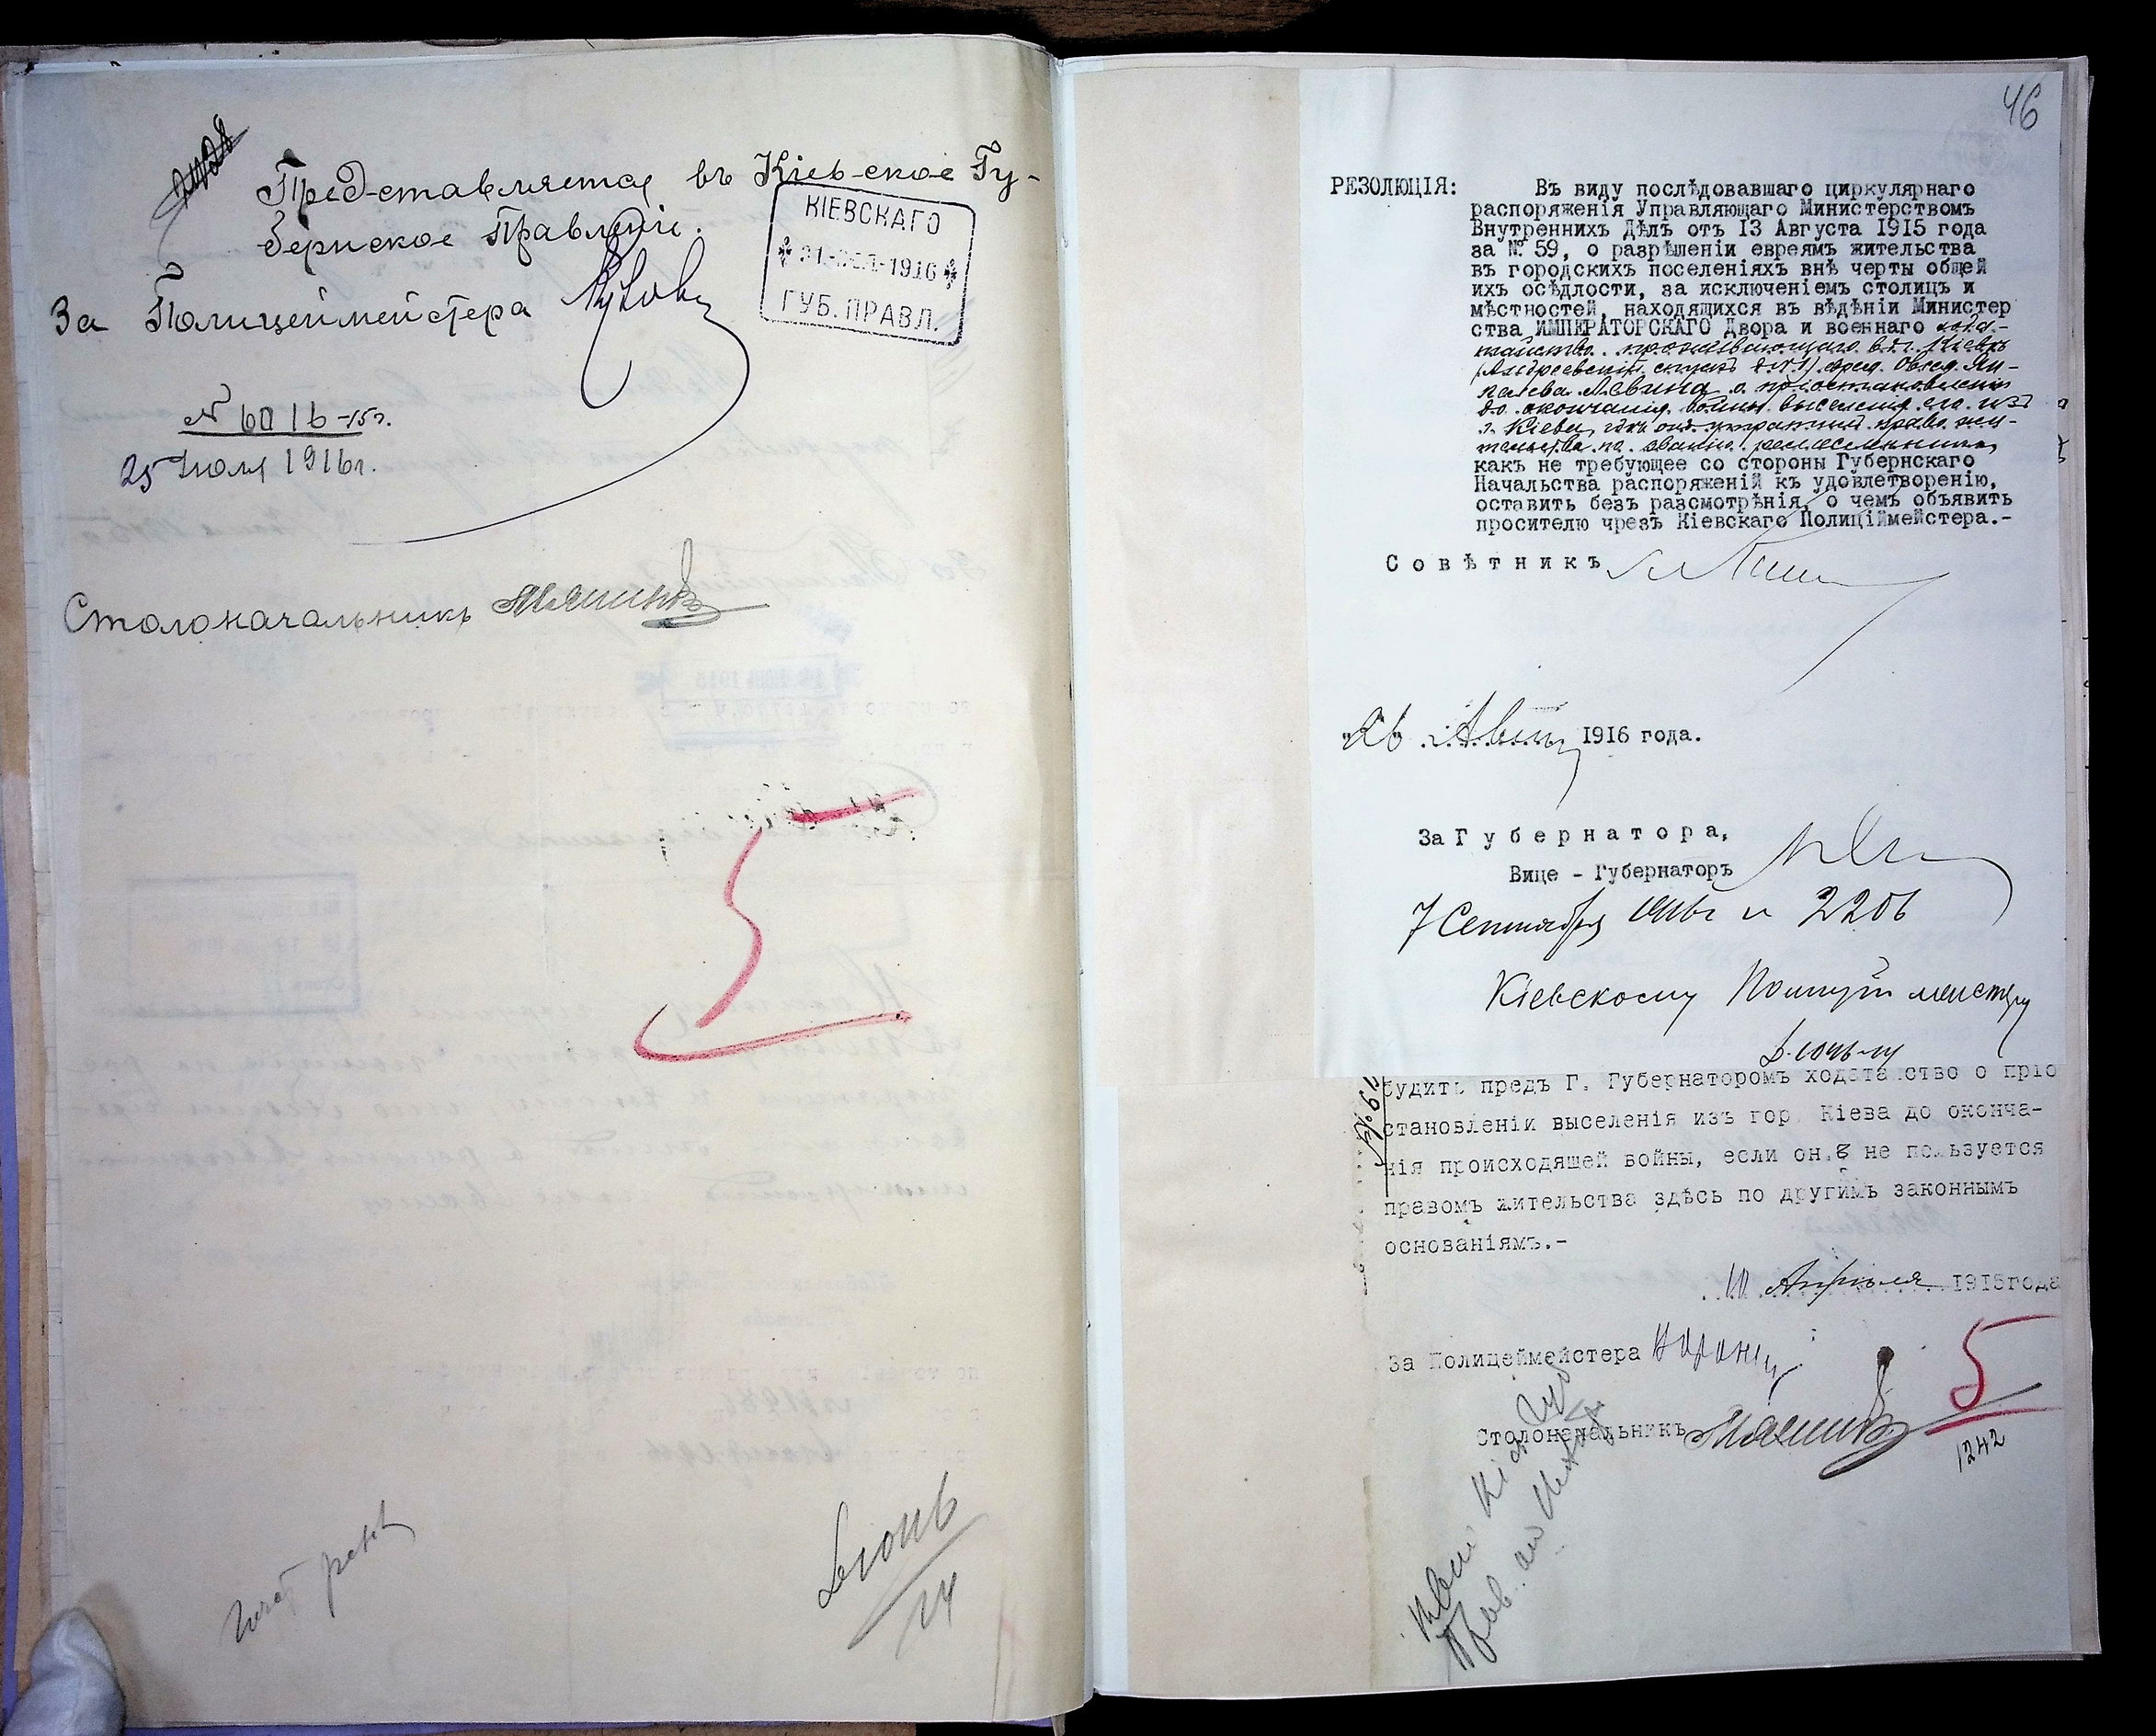 Представляется въ Кіевское Гу-
бернское Правленіе.
КІЕВСКАГО
1916
ГУБ. ПРАВЛ.
За Полицеймейстера
N 6016-15г.
25 Іюля 1916г.
Столоначальникъ
5
46
РЕЗОЛЮЦІЯ:
Въ виду послѣдовавшаго циркулярнаго
распоряженія Управляющаго Министерствомъ
Внутреннихъ Дѣлъ отъ 13 Августа 1915 года
за № 59, о разрѣшеніи евреямъ жительства
въ городскихъ поселеніяхъ внѣ черты общей
ихъ осѣдлости, за исключеніемъ столицъ и
мѣстностей, находящихся въ вѣдѣніи Министер
ства ИМПЕРАТОРСКАГО Двора и военнаго хода-
тайство проживающаго въ г. Кіевѣ
(Андреевскій спускъ д. №
Левина о пріостановленіи
до окончанія войны выселенія его изъ
г. Кіева, гдѣ онъ утратилъ право жи-
тельства по званію ремесленника,
какъ не требующее со стороны Губернскаго
Начальства распоряженій къ удовлетворенію,
оставить безъ разсмотрѣнія, о чемъ объявить
просителю чрезъ Кіевскаго Полиціймейстера.-
Совѣтникъ
"26" 1916 года.
За Губернатора,
Вице - Губернаторъ
7 Сентября 1916г N 2206
Кіевскому Полиціймейстеру
будить предъ Г. Губернаторомъ ходатайство о пріо
становленіи выселенія изъ гор. Кіева до оконча-
нія происходящей войны, если онъ не пользуется
правомъ жительства здѣсь по другимъ законнымъ
основаніямъ.-
10 Апрѣля 1915года
За Полицеймейстера
5
Столоначальникъ
1242